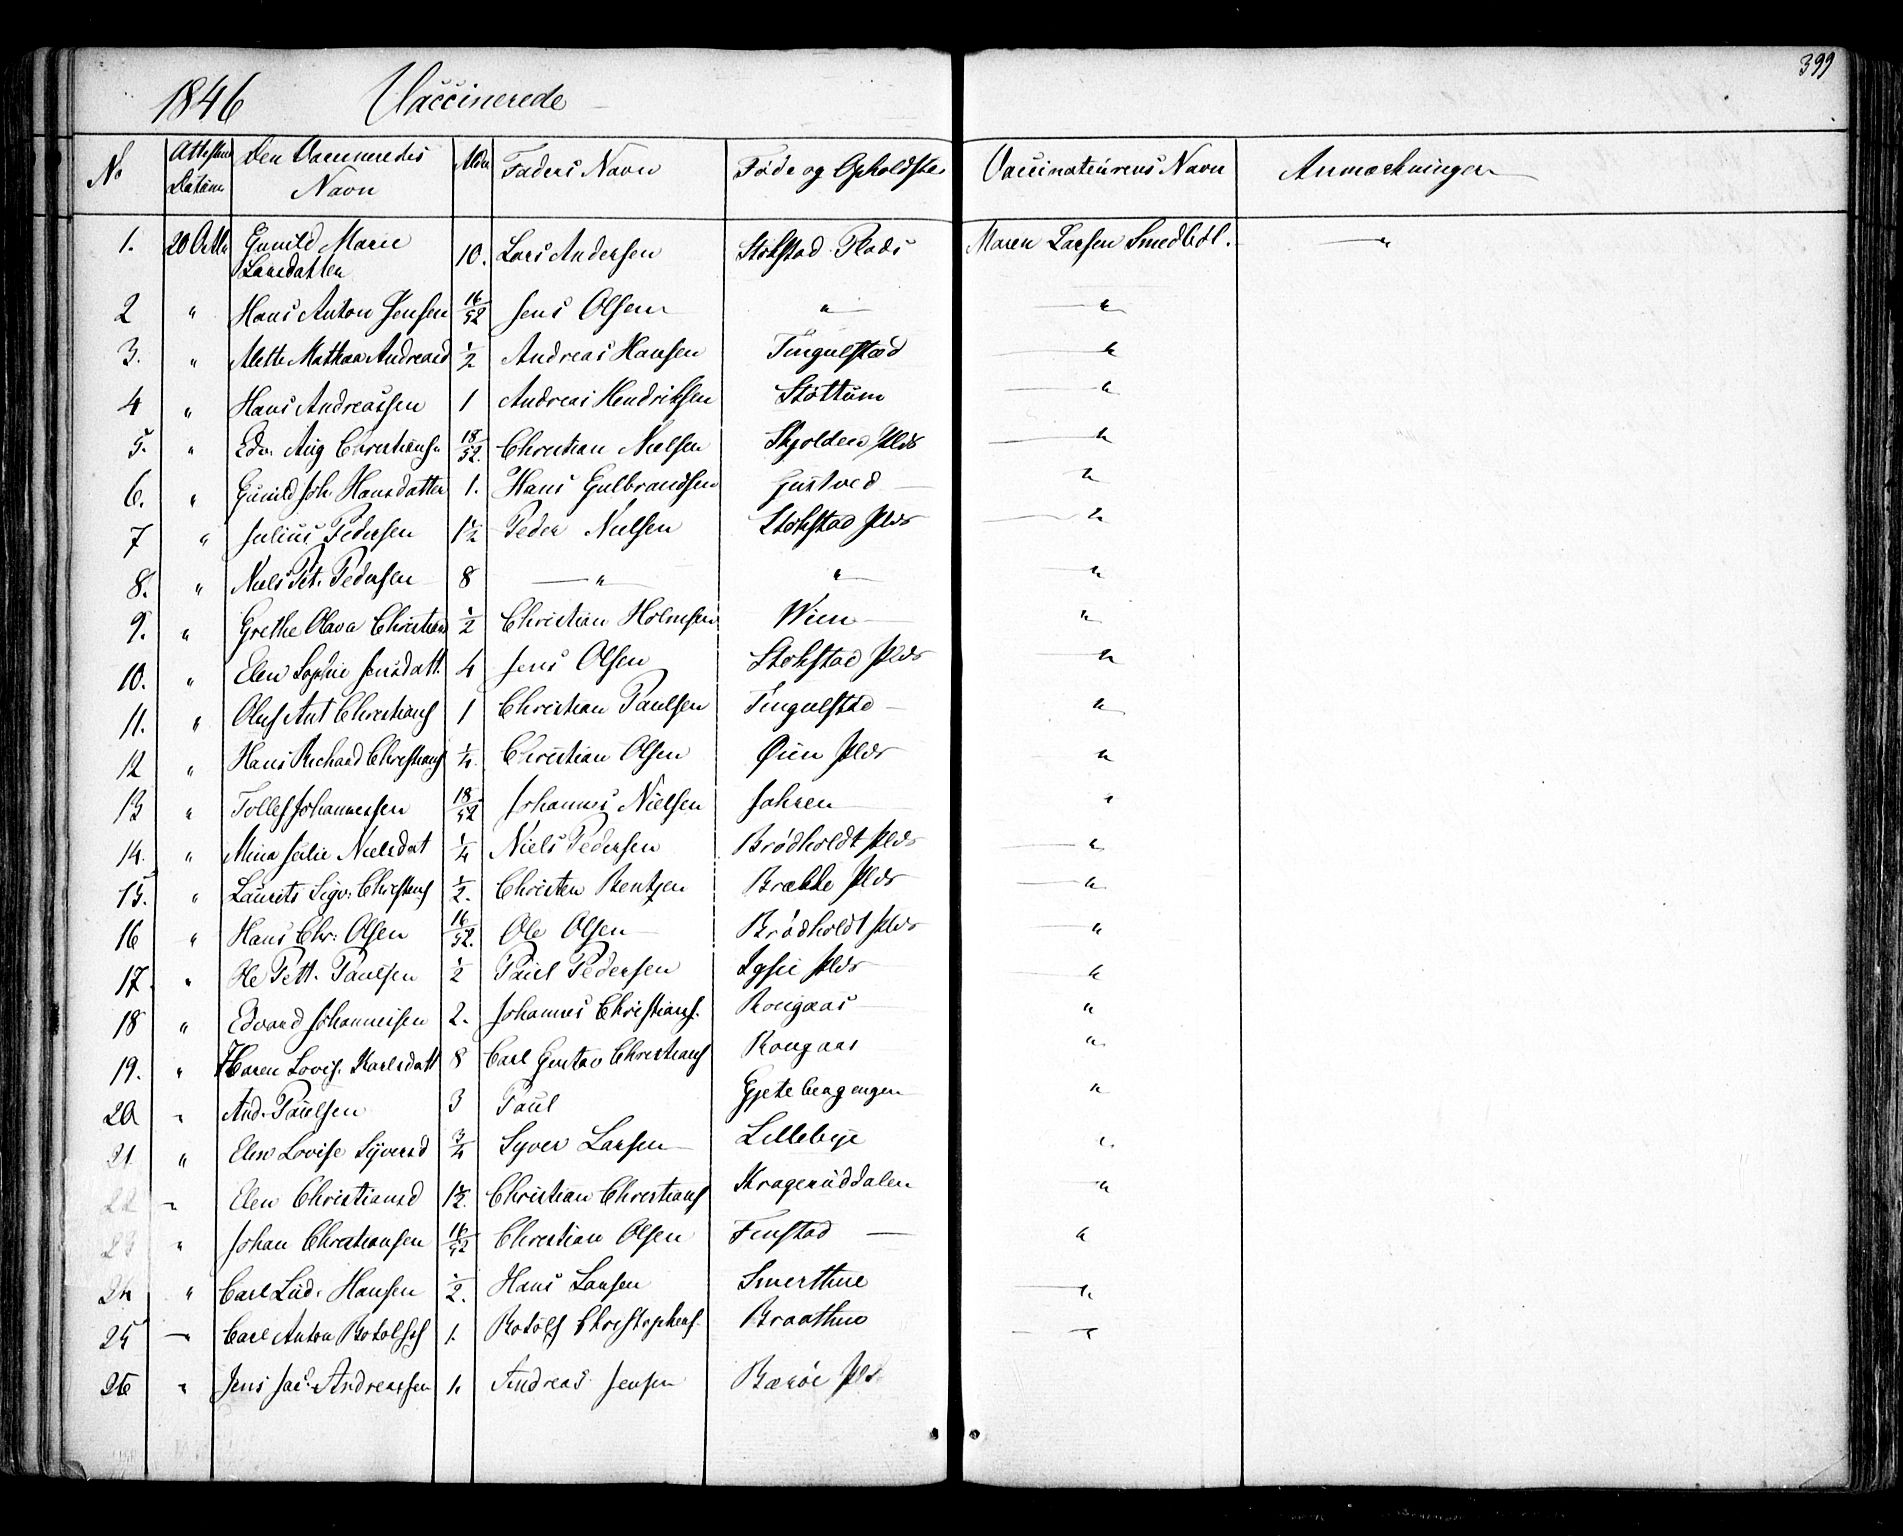 399
1846 Vaccinerede
No Attestens Datum Den Vaccineredes Navn Alder Faders Navn Føde og Opholdsted Vaccinateurens Navn Anmærkninger
1. 20 Octbr Gunild Marie Larsdatter 10. Lars Andersen Stokstad Plads Maren Larsen Smedbøl. "
2 " Hans Anton Jensen 16/52 Jens Olsen " "
3. " Mette Mathea Andreasd 1/2 Andreas Hansen Tingulstad "
4 " Hans Andreassen 1 Andreas Hendriksen Støttum "
5. " Edv. Aug Christians 18/52. Christian Nielsen Skjolden Plds "
6. " Gunild Joh Hansdatter 1. Hans Gulbrandsen "
7 " Julius Pedersen 1 1/2 Peder Nielsen Stokstad Plds "
8. " Niels Pet. Pedersen 8 " " "
9. " Grethe Olava Christians 1/2 Christian Holmsen Wien "
10. " Elen Sophie Jensdatt. 4 Jens Olsen Stokstad Plds "
11. " Oluf Ant Christians 1 Christian Paulsen Tingulstad "
12 " Hans Richard Christians 1/4 Christian Olsen Øien Plds "
13 " Tollef Johannessen 18/52 Johannes Nielsen Jahren "
14. " Mina Nielsdat 1/4 Niels Pedersen Brødholdt Plds "
15. " Laurits Sigv: Christens 1/2. Christen Bentzen Brække Plds "
16 " Hans Chr: Olsen 16/52. Ole Olsen Brødholdt Plds "
17. " Ole Pett. Paulsen 1/2 Paul Pedersen Plds "
18 " Edvard Johannesen 2. Johannes Christians. Rougaas "
19. " Karen Lovis. Karlsdatt 8 Carl Gustav Christians Rougaas "
20 " And. Paulsen 3 Paul Gjeteberg engen "
21 " Elen Lovise Syversd 3/4 Syver Larsen Lillebye "
22 " Elen Christiansd 1 1/2. Christian Christians Krageruddalen "
23 " Johan Christiansen 16/52 Christian Olsen Finstad "
24 " Carl Lud. Hansen 1/2. Hans Larsen Smerthue "
25 " Carl Anton Rotolfs 1. Rotolf Christophers. Braathue "
26 " Jens Jac. Andreassen 1. Andreas Jensen Plds